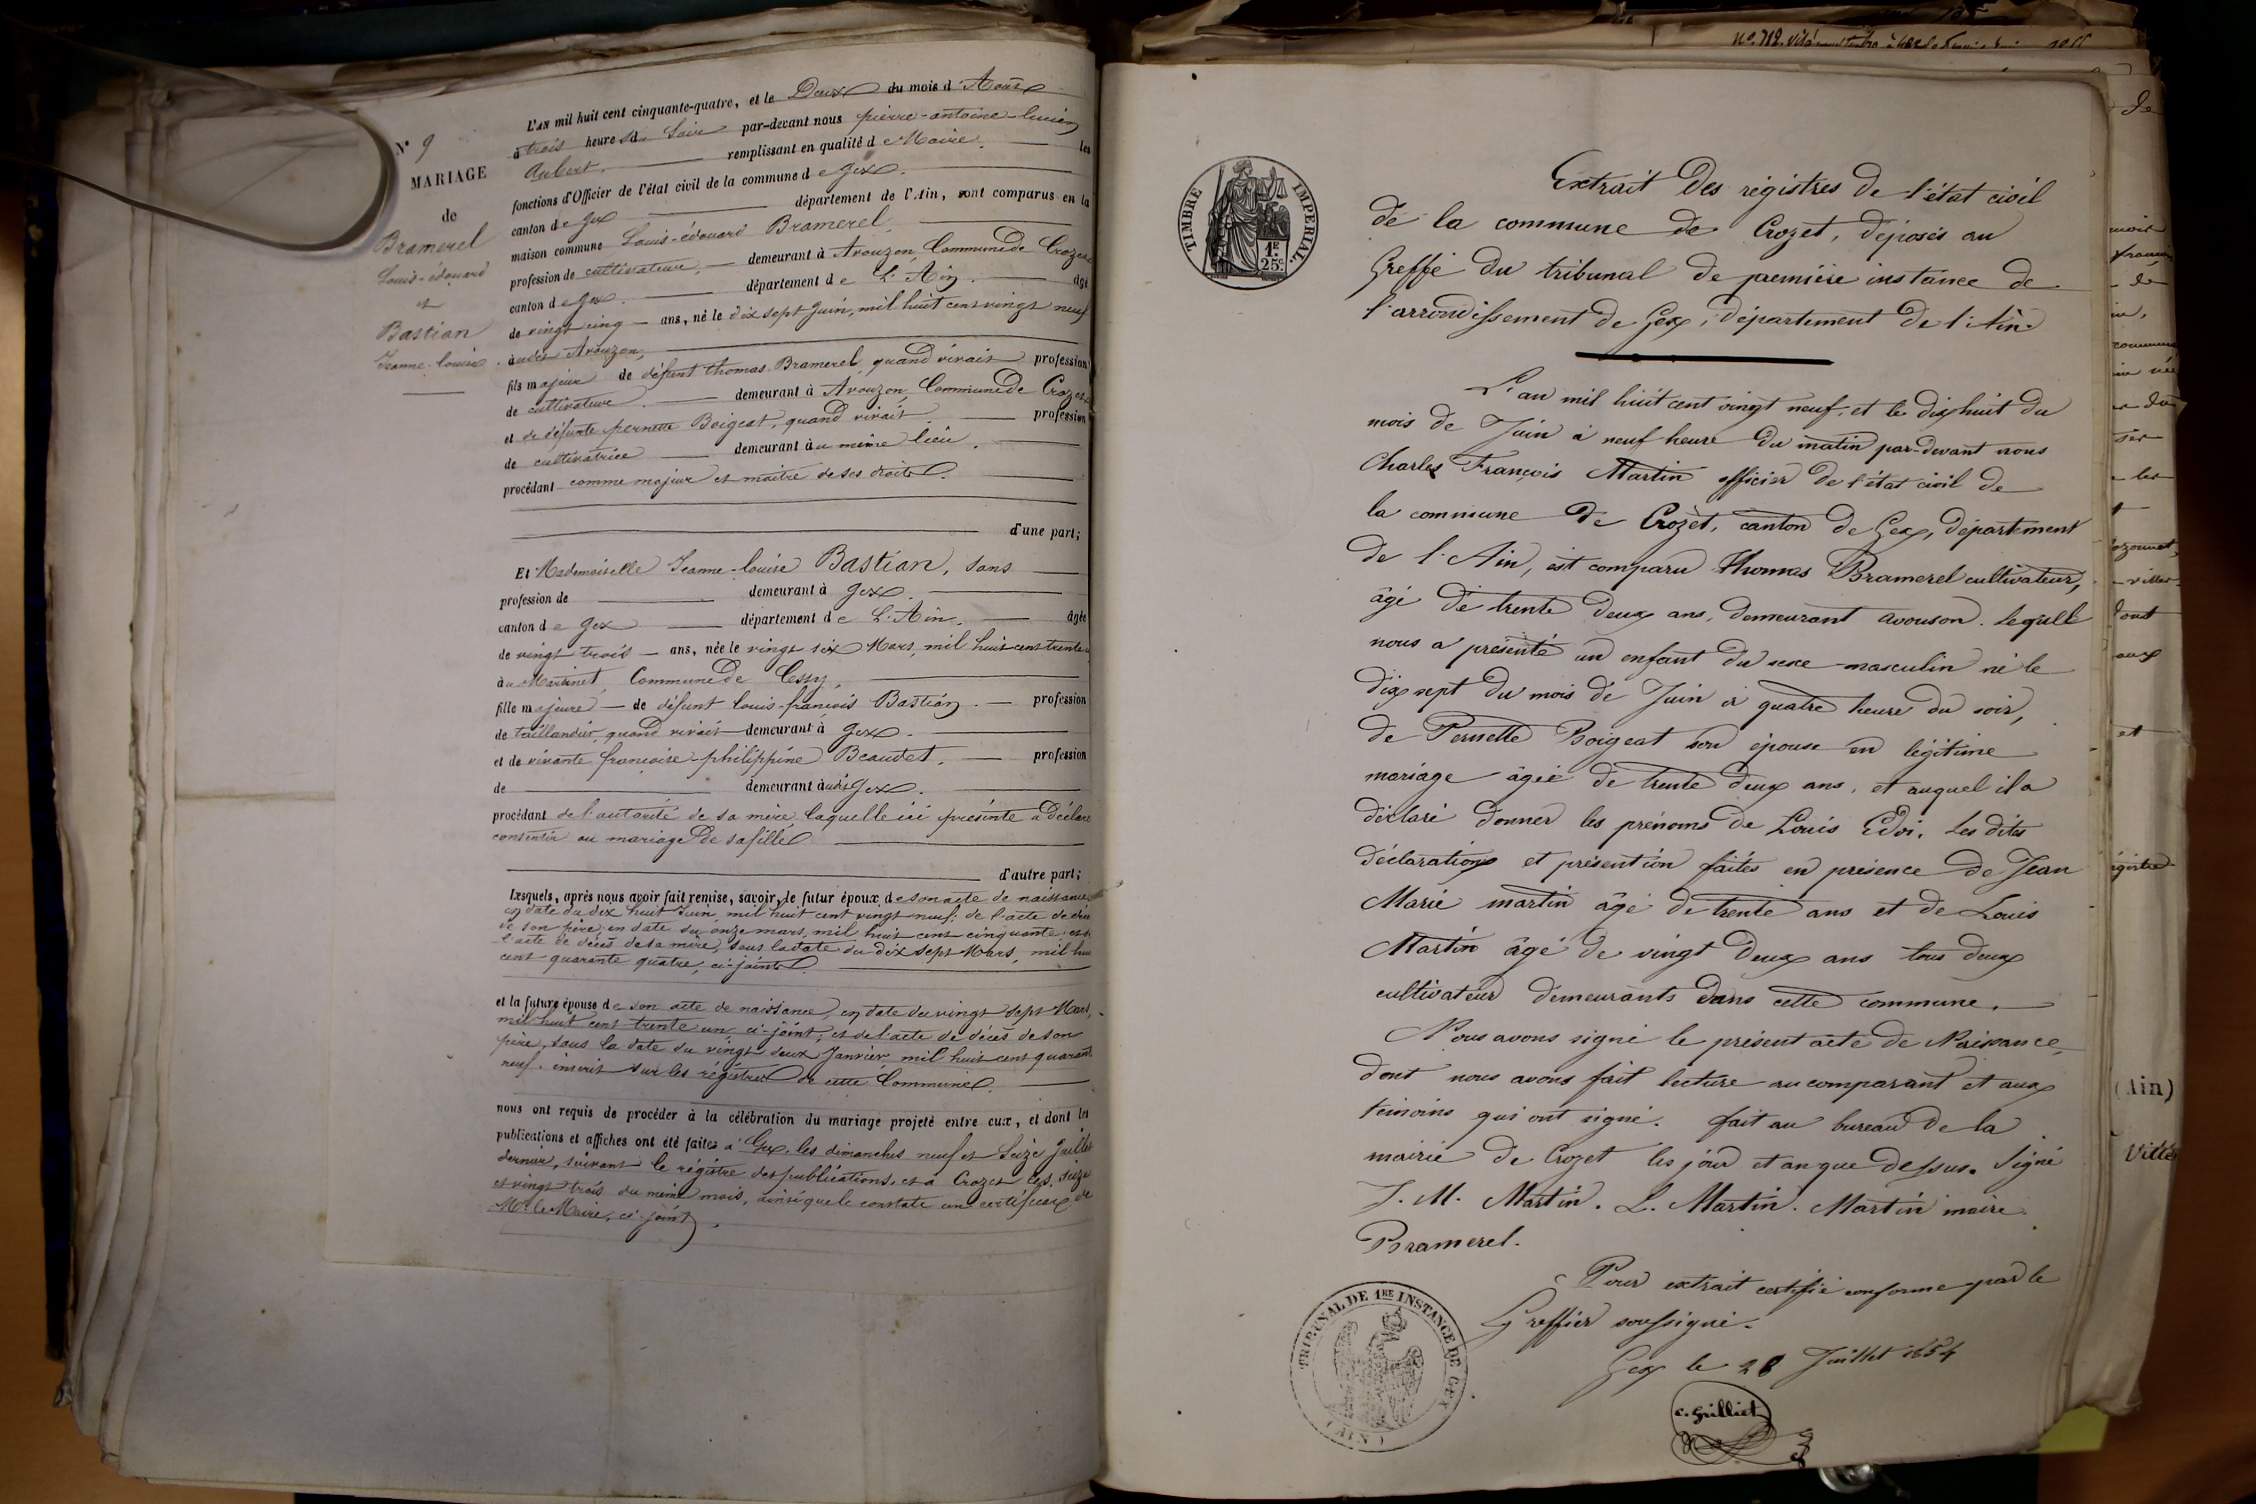 N° 9
MARIAGE
de
Bramerel
Louis-édouard
et
Bastian
Jeanne-louise
L'an mil huit cent cinquante-quatre, et le Deux du mois d'Août
à trois heures du Soir par-devant nous pierre-antoine-lucien
Aubert. remplissant en qualité de Maire. les
fonctions d'Officier de l'état civil de la commune de gex.
canton de gex département de l'Ain, sont comparus en la
maison commune Louis-édouard Bramerel,
profession de cultivateur, demeurant à Avouzon, Commune de Crozet
canton de gex. département de L'Ain. âgé
de vingt cinq ans, né le dix sept Juin, mil huit cent vingt neuf
à udit Avouzon,
fils majeur de défunt thomas Bramerel, quand vivait profession
de cultivateur. demeurant à Avouzon, Commune de Crozet
et de défunte pernette Boigeat, quand vivait profession
de cultivatrice demeurant au même lieu.
procédant comme majeur et maître de ses droits.
d'une part;
Et Mademoiselle Jeanne-louise Bastian, sans
profession de demeurant à gex.
canton de gex département de L'Ain. âgée
de vingt trois ans, née le vingt six Mars, mil huit cent trente un
à u Martinet, Commune de Cessy,
fille majeure de défunt louis-françois Bastian. profession
de taillandier, quand vivait demeurant à gex.
et de vivante françoise-philippine Beaudet. profession
de demeurant à udit gex.
procédant de l'autorité de sa mère, laquelle ici présente a déclaré
consentir au mariage de sa fille
d'autre part;
Lesquels, après nous avoir fait remise, savoir, le futur époux, de son acte de naissance
en date du dix huit Juin, mil huit cent vingt neuf; de l'acte de décès
de son père, en date du onze mars, mil huit cent cinquante; et de
l'acte de décès de sa mère, sous la date du dix sept Mars, mil huit
cent quarante quatre, ci-joints.
et la future épouse de son acte de naissance, en date du vingt sept Mars,
mil huit cent trente un, ci-joint; et de l'acte de décès de son
père, sous la date du vingt deux Janvier, mil huit cent quarante
neuf. inscrit sur les régistres de cette Commune.
nous ont requis de procéder à la célébration du mariage projeté entre eux, et dont les
publications et affiches ont été faites à Gex, les dimanches neuf et Seize Juillet
dernier, suivant le régistre des publications, et à Crozet les seize
et vingt trois du même mois, ainsi que le constate un certificat de
Mr le Maire, ci-joint.
TIMBRE IMPERIAL
1F.
25c.
Extrait des régistres de l'état civil
de la commune de Crozet, déposés au
Greffe du tribunal de première instance de
l'arrondissement de Gex, département de l'Ain.
L'an mil huit cent vingt neuf, et le dix huit du
mois de Juin à neuf heure du matin par-devant nous
Charles François Martin officier de l'état civil de
la commune de Crozet, canton de Gex, département
de l'Ain, est comparu Thomas Bramerel cultivateur,
âgé de trente deux ans, demeurant avouson. Lequell
nous a présenté un enfant du sexe masculin né le
dix sept du mois de Juin à quatre heure du soir,
de Pernette Boigeat son épouse en légitime
mariage âgée de trente deux ans, et auquel il a
déclaré donner les prénoms de Louis Edoi. Les dites
déclarations et présention faites en présence de Jean
Marie martin âgé de trente ans et de Louis
Martin âgé de vingt deux ans tous deux
cultivateur demeurants dans cette commune.
Nous avons signé le présent acte de Naissance,
dont nous avons fait lecture au comparant et aux
témoins qui ont signé. fait au bureau de la
mairie de Crozet les jour et an que dessus. Signé
J. M. Martin. L. Martin. Martin maire
Bramerel.
Pour extrait certifié conforme par le
Greffier soussigné.
Gex le 28 Juillet 1854
C. Grilliet
TRIBUNAL DE 1RE INSTANCE DE GEX
(AIN)
de
et
(Ain)